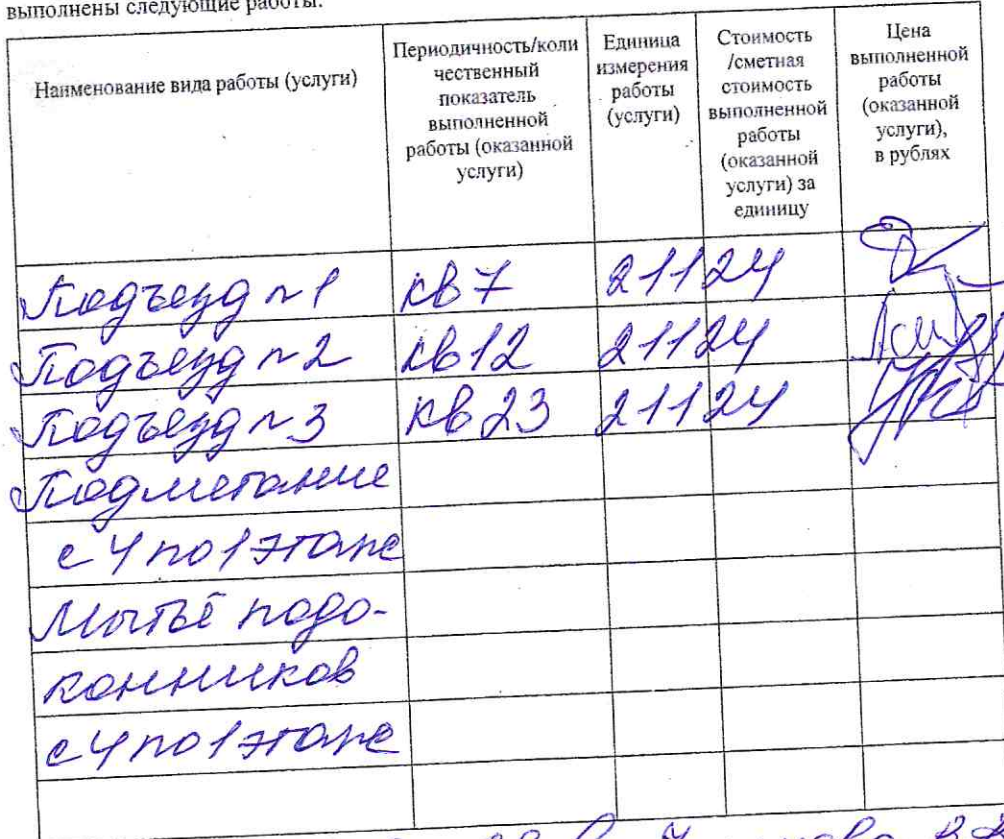 выполнены следующие работы:
Наименование вида работы (услуги)
Периодичность/коли
чественный
показатель
выполненной
работы (оказанной
услуги)
Единица
измерения
работы
(услуги)
Стоимость
/сметная
стоимость
выполненной
работы
(оказанной
услуги) за
единицу
Цена
выполненной
работы
(оказанной
услуги),
в рублях
Подъезд №1 кв 7 21124
Подъезд №2 кв 12 21124
Подъезд №3 кв 23 21124
Подметание
с 4 по 1 этаже
Мытьё подо-
конников
с 4 по 1 этаже